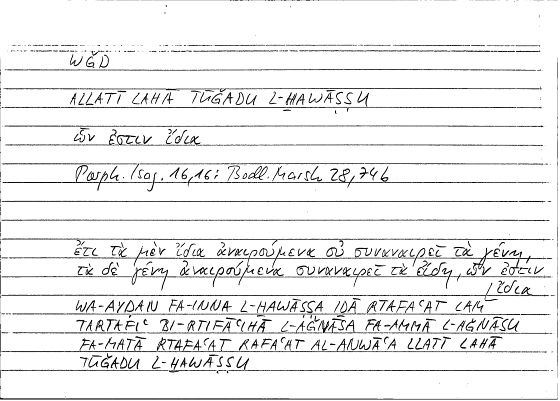 WǦD
ALLATĪ LAHĀ TŪǦADU L-ḪAWĀṢṢU
ὧν ἐστιν ἴδια
Porph. Isag. 16,16: Bodl. Marsh 28, 74b
ἔτι τὰ μὲν ἴδια ἀναιρούμενα οὐ συναναιρεῖ τὰ γένη,
τὰ δὲ γένη ἀναιρούμενα συναναιρεῖ τὰ εἴδη, ὧν ἐστιν
ἴδια
WA-AYḌAN FA-INNA L-ḪAWĀṢṢA IḎĀ RTAFAʿAT LAM
TARTAFIʿ BI-RTIFĀʿIHĀ L-AǦNĀSA FA-AMMĀ L-AǦNĀSU
FA-MATĀ RTAFAʿAT RAFAʿAT AL-ANWĀʿA LLATĪ LAHĀ
TŪǦADU L-ḪAWĀṢṢU